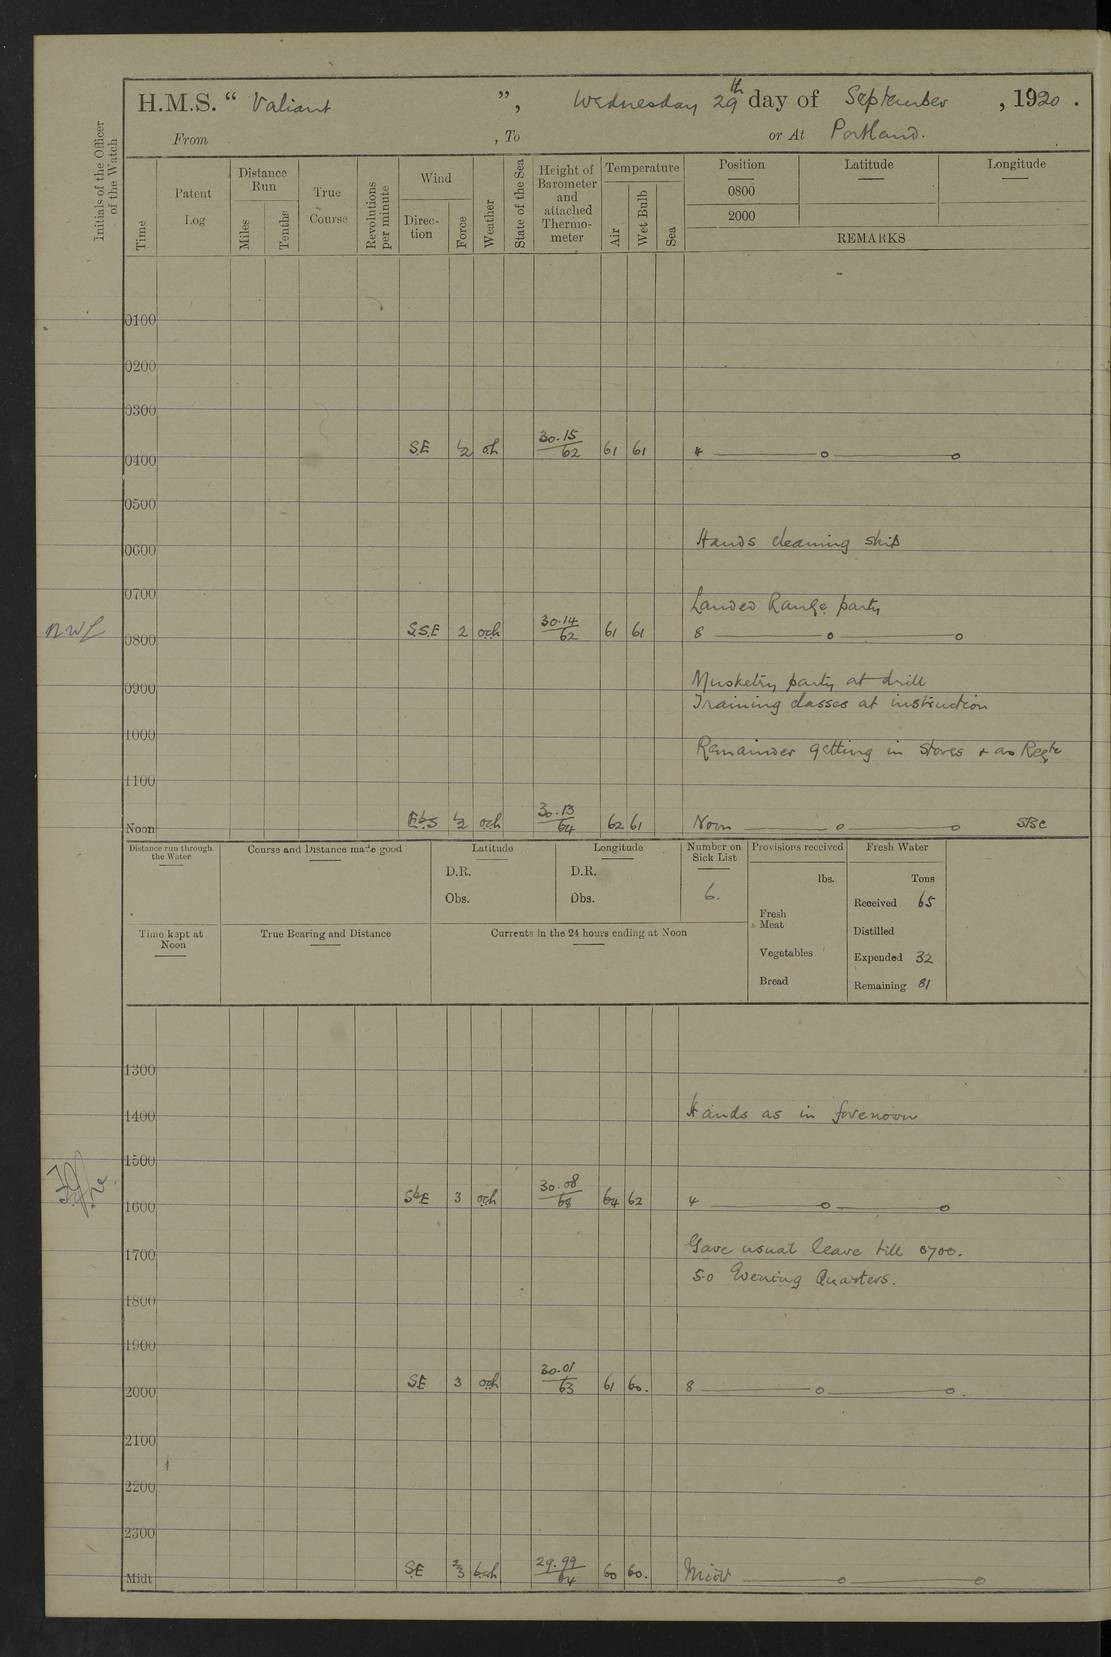 H.M.S. “ Valiant ”, Wednesday 29th day of September , 1920 .
From , To or At Portland.
Initials of the Officer of the Watch
Time
Patent Log
Distance Run
Miles
Tenths
True Course
Revolutions per minute
Wind
Direc-tion
Force
Weather
State of the Sea
Height of Barometer and attached Thermo-meter
Temperature
Air
Wet Bulb
Sea
Position
0800
2000
Latitude
Longitude
REMARKS
0100
0200
0300
0400 S.E 1/2 oh 30.15/62 61 61 4
0500
0600 Hands cleaning ship
0700 Landed Range party
0800 S.S.E 2 och 30.14/62 61 61 8
0900 Musketry party at drill
Training classes at instruction
1000 Remainder getting in stores + as Reqte
1100
Noon EbS 1/2 och 30.13/64 62 61 Noon
Distance run through the Water
Course and Distance made good
Latitude
D.R.
Obs.
Longitude
D.R.
Obs.
Number on Sick List
6.
Provisions received
lbs.
Fresh Meat
Vegetables
Bread
Fresh Water
Tons
Received 65
Distilled
Expended 32
Remaining 81
Time kept at Noon
True Bearing and Distance
Currents in the 24 hours ending at Noon
1300
1400 Hands as in forenoon
1500
1600 SbE 3 och 30.08/68 64 62 4
1700 Gave usual leave till 0700.
5.0 Evening Quarters.
1800
1900
2000 SE 3 och 30.01/63 61 60. 8
2100
2200
2300
Midt SE 2/3 bch 29.99/64 60 60. Midt